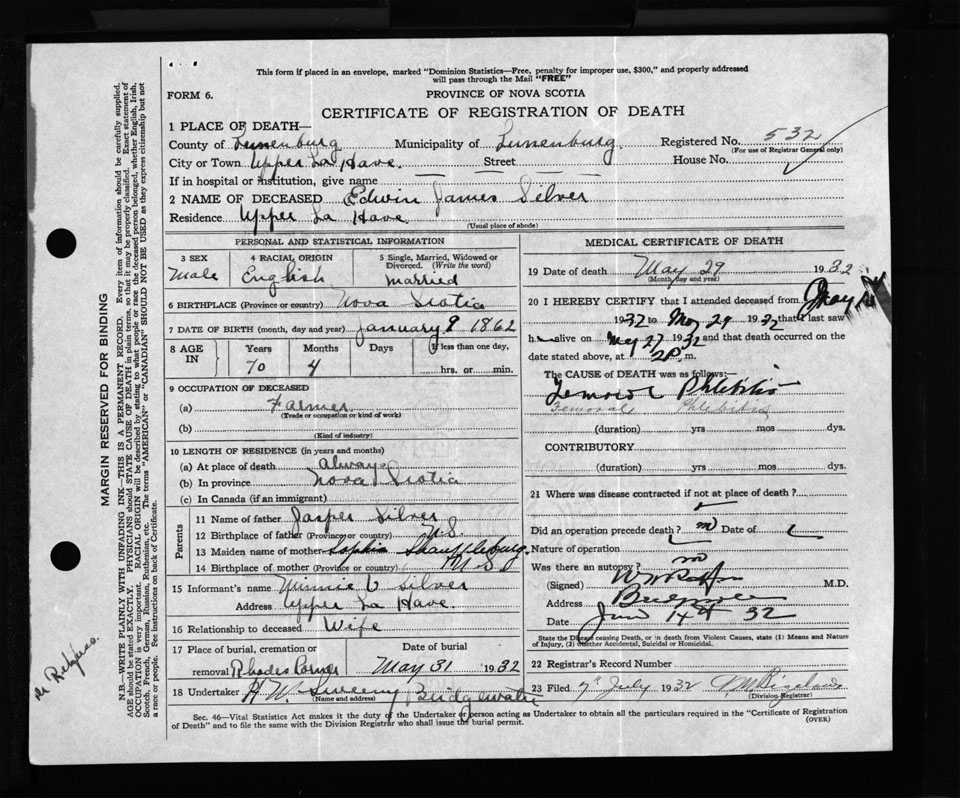 This form if placed in an envelope, marked "Dominion Statistics—Free, penalty for improper use, $300," and properly addressed
will pass through the Mail "FREE"
FORM 6. PROVINCE OF NOVA SCOTIA
CERTIFICATE OF REGISTRATION OF DEATH
1 PLACE OF DEATH—
County of Lunenburg Municipality of Lunenburg. Registered No. 532
(For use of Registrar General only)
City or Town Upper La Have. Street House No.
If in hospital or institution, give name
2 NAME OF DECEASED Edwin James Silver
Residence Upper La Have.
(Usual place of abode)
PERSONAL AND STATISTICAL INFORMATION
3 SEX 4 RACIAL ORIGIN 5 Single, Married, Widowed or
Divorced. (Write the word)
Male English Married
6 BIRTHPLACE (Province or country) Nova Scotia
7 DATE OF BIRTH (month, day and year) January 9 1862
8 AGE IN Years Months Days If less than one day,
70 4 hrs. or min.
9 OCCUPATION OF DECEASED
(a) Farmer
(Trade or occupation or kind of work)
(b)
(Kind of industry)
10 LENGTH OF RESIDENCE (in years and months)
(a) At place of death always
(b) In province Nova Scotia
(c) In Canada (if an immigrant)
Parents
11 Name of father Jasper Silver
12 Birthplace of father (Province or country) N.S.
13 Maiden name of mother Sophia
14 Birthplace of mother (Province or country) N.S.
15 Informant's name Minnie V Silver
Address Upper La Have.
16 Relationship to deceased Wife
17 Place of burial, cremation or Date of burial
removal Rhodes Corner May 31 1932
18 Undertaker H W Sweeny Bridgewater
(Name and address)
MEDICAL CERTIFICATE OF DEATH
19 Date of death May 29 1932
(Month, day and year)
20 I HEREBY CERTIFY that I attended deceased from May
1932 to May 29 1932 that I last saw
h alive on May 27 1932 and that death occurred on
date stated above, at 2 P. m.
The CAUSE OF DEATH was as follows:
Femoral Phlebitis
Femoral Phlebitis
(duration) yrs mos dys.
CONTRIBUTORY
(duration) yrs mos dys.
21 Where was disease contracted if not at place of death?
Did an operation precede death? no Date of
Nature of operation
Was there an autopsy? no
(Signed) M.D.
Address Bridgewater
Date Jun 14th 32
State the Disease causing Death, or in death from Violent Causes, state (1) Means and Nature
of Injury, (2) whether Accidental, Suicidal or Homicidal.
22 Registrar's Record Number
23 Filed 7th July 1932
(Division Registrar)
Sec. 46—Vital Statistics Act makes it the duty of the Undertaker or person acting as Undertaker to obtain all the particulars required in the "Certificate of Registration
of Death" and to file the same with the Division Registrar who shall issue the burial permit. (OVER)
MARGIN RESERVED FOR BINDING
N.B.—WRITE PLAINLY WITH UNFADING INK—THIS IS A PERMANENT RECORD. Every item of information should be carefully supplied.
AGE should be stated EXACTLY. PHYSICIANS should STATE CAUSE OF DEATH in plain terms, so that it may be properly classified. Exact statement of
OCCUPATION is very important. RACIAL ORIGIN will be described by stating to what people or race the deceased person belonged, whether English, Irish,
Scotch, French, German, Russian, Ruthenian, etc. The terms "AMERICAN" or "CANADIAN" SHOULD NOT BE USED as they express citizenship but not
a race or people. See instructions on back of Certificate.